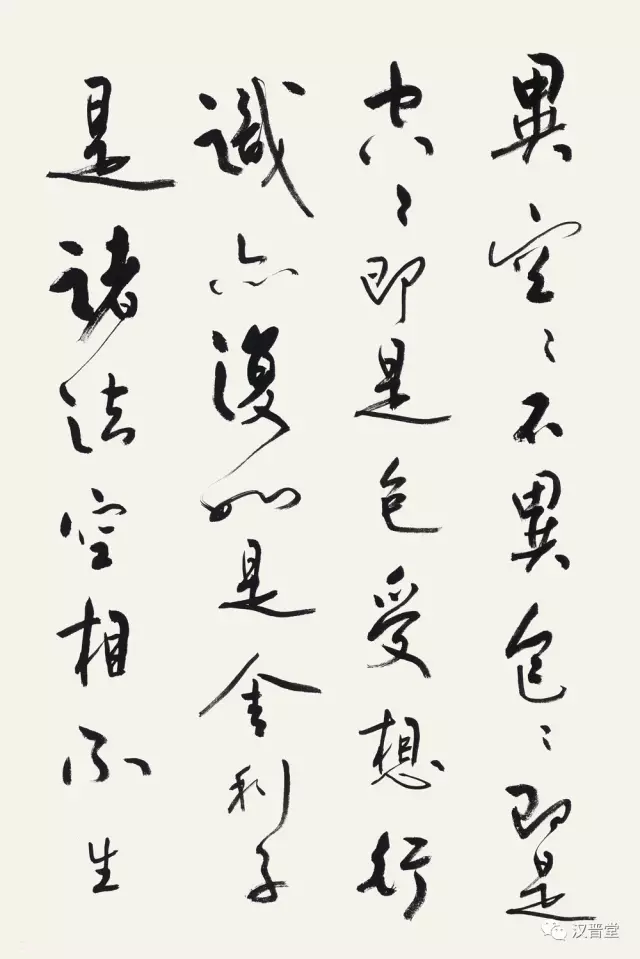 異空〻不異色〻即是
空〻即是色受想行
識亦復如是舍利子
是諸法空相不生
汉晋堂